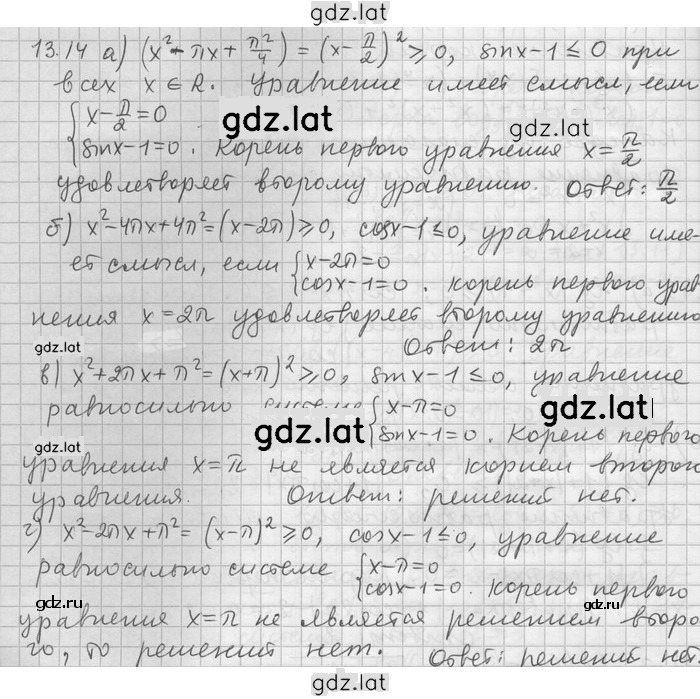 gdz.lat
13.14 а) (x² - πx + π²/4) = (x - π/2)² ≥ 0, sinx-1 ≤ 0 при
всех x ∈ R. Уравнение имеет смысл, если
{x - π/2 = 0
{sinx-1=0. Корень первого уравнения x = π/2
gdz.lat
gdz.lat
удовлетворяет второму уравнению. Ответ: π/2
б) x²-4πx+4π²=(x-2π)≥0, cosx-1≤0, уравнение име-
ет смысл, если {x-2π=0
{cosx-1=0. корень первого урав
нения x=2π удовлетворяет второму уравнению
gdz.lat
Ответ: 2π
в) x²+2πx+π²=(x+π)²≥0, sinx-1≤0, уравнение
равносильно {x-π=0
{sinx-1=0. Корень первого
gdz.lat
gdz.lat
gdz.lat
уравнения x=π не является корнем второго
уравнения. Ответ: решений нет.
г) x²-2πx+π²=(x-π)²≥0, cosx-1≤0, уравнение
равносильно системе {x-π=0
{cosx-1=0. корень первого
gdz.ru
gdz.ru
уравнения x=π не является решением второ
го, то решений нет. Ответ: решений нет.
gdz.lat